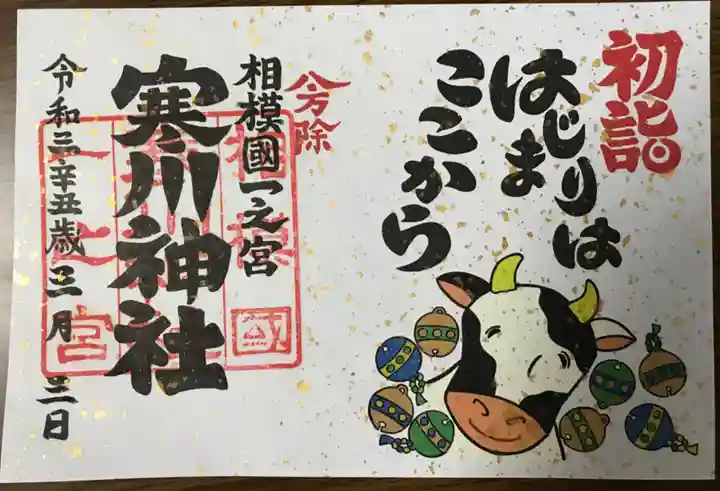 初詣
はじまりは
ここから
八方除
相模國一之宮
寒川神社
令和三辛丑歳三月三日
相模國
一之宮